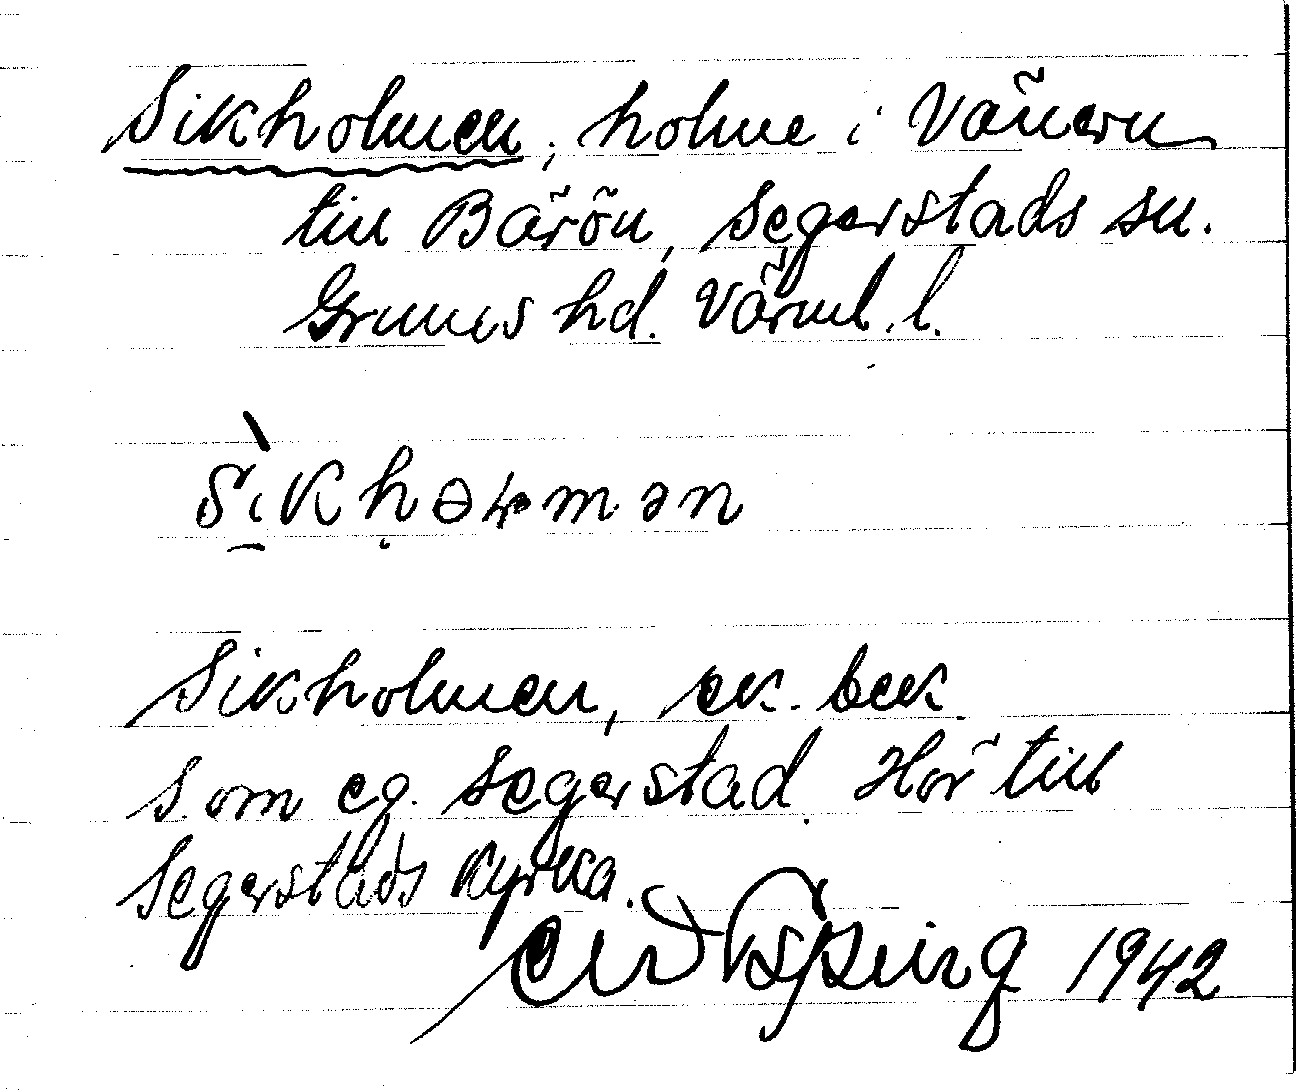 Sikholmen, holme i Vänern
till Bärön, Segerstads sn.
Grums hd. Värml. l.
sìkhɵɽmən
Sikholmen, ek. bek.
som eg. Segerstad. Hör till
Segerstads kyrka.
1942